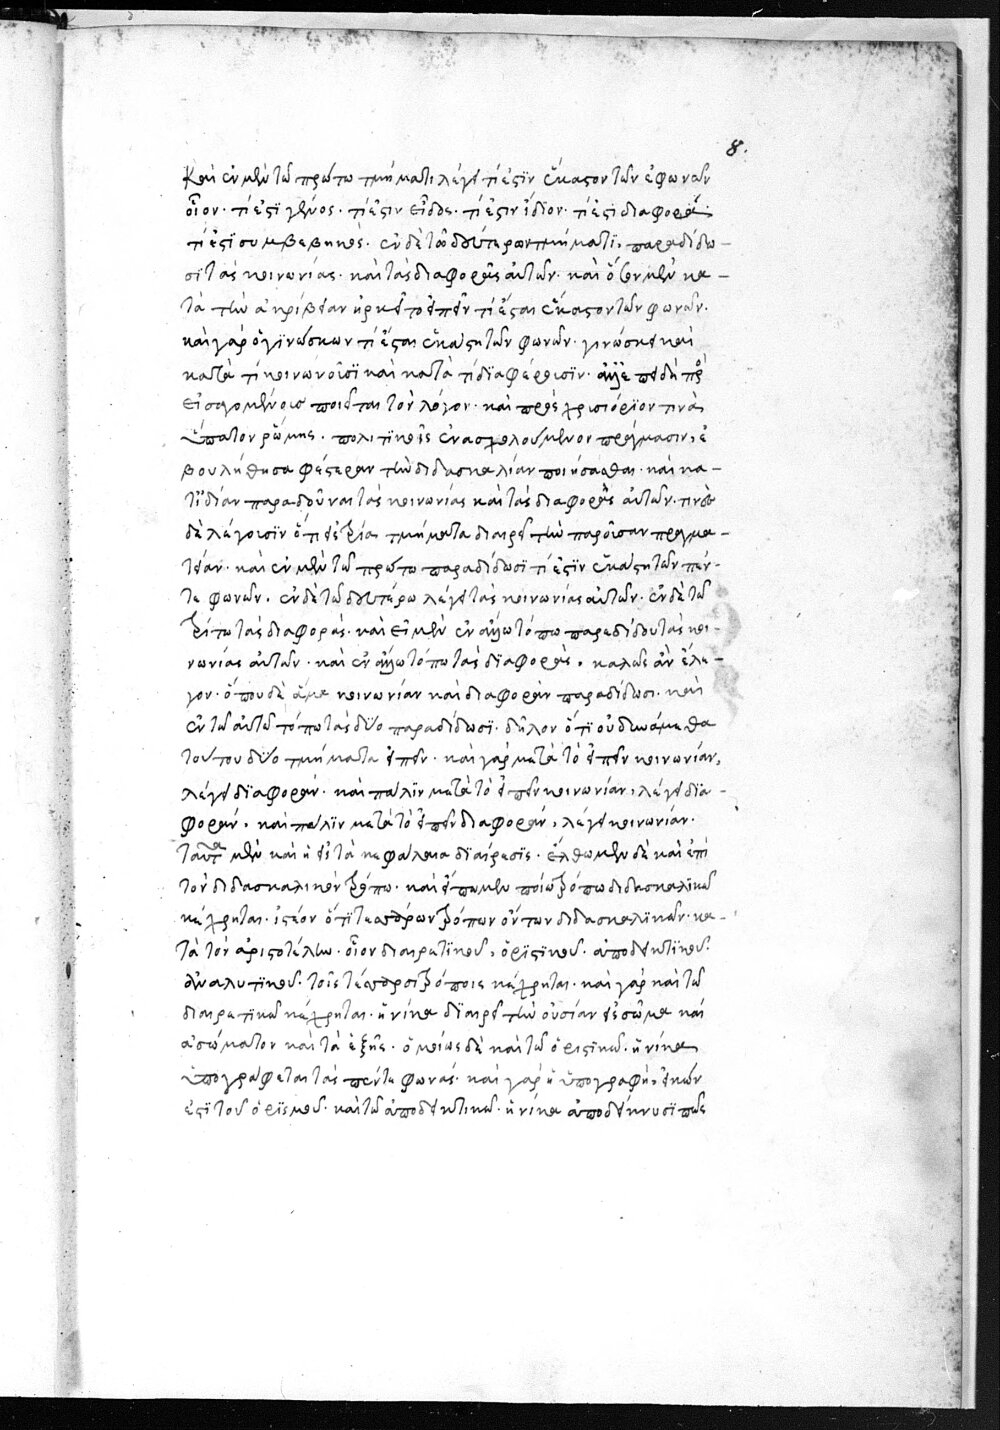 8.
καὶ ἐν μὲν τῶ πρώτω τμήματι λέγει τί ἐστὶν ἕκαστον τῶν ε φωνῶν
οἷον· τί ἐστὶ γένος· τί ἐστιν εἶδος· τί ἐστιν ἴδιον· τί ἐστι διαφορά·
τί ἐστὶ συμβεβηκός· ἐν δὲ τῶ δευτέρω τμήματι, παραδίδω –
σι τὰς κοινωνίας· καὶ τὰς διαφορὰς αὐτῶν· καὶ μὲν κα –
τὰ τὴν ἀκρίβειαν ἠρκεῖτο εἰπεῖν τί ἔσται ἕκαστον τῶν φωνῶν·
καὶ γὰρ ὁ γινώσκων τί ἔσται ἑκάστη τῶν φωνῶν· γινώσκει καὶ
κατὰ τί κοινωνοῦσι καὶ κατὰ τί διαφέρουσιν· ἀλλ' ἐπειδὴ πρὸς
εἰσαγομένοις ποιεῖται τὸν λόγον· καὶ πρὸς χρισαόριον τινὰ
ὕπατον ῥώμης· πολιτικοῖς ἐνασχολούμενον πράγμασιν, ἐ
βουλήθη σαφέστεραν τὴν διδασκαλίαν ποιήσασθαι· καὶ κα –
τ' ἰδίαν παραδοῦναι τὰς κοινωνίας καὶ τὰς διαφορὰς αὐτῶν· τινὲς
δὲ λέγουσιν ὅτι εἰς τρία τμήματα διαιρεῖ τὴν παροῦσαν πραγμα –
τείαν· καὶ ἐν μὲν τῶ πρώτω παραδίδωσι τί ἐστὶν ἑκάστη τῶν πέν –
τε φωνῶν· ἐν δὲ τῶ δευτέρω λέγει τὰς κοινωνίας αὐτῶν· ἐν δὲ τῶ
τρίτω τὰς διαφοράς· καὶ εἰ μὲν ἐν ἄλλω τόπω παρεδίδου τὰς κοι –
νωνίας αὐτῶν· καὶ ἐν ἄλλω τόπω τὰς διαφορὰς, καλῶς ἂν ἔλε –
γον· ὅπου δὲ ἅμα κοινωνίαν καὶ διαφορὰν παραδίδωσι· καὶ
ἐν τῶ αὐτῶ τόπω τὰς δύο παραδίδωσι· δῆλον ὅτι οὐ δυνάμεθα
τούτου δύο τμήματα εἰπεῖν· καὶ γὰρ μετὰ τὸ εἰπεῖν κοινωνίαν,
λέγει διαφοράν· καὶ πάλιν μετὰ τὸ εἰπεῖν κοινωνίαν, λέγει δια –
φοράν, καὶ πάλιν μετὰ τὸ εἰπεῖν διαφοράν, λέγει κοινωνίαν·
ταῦτα μὲν καὶ ἡ εἰς τὰ κεφάλαια διαίρεσις· ἔλθωμεν δὲ καὶ ἐπὶ
τὸν διδασκαλικὸν τρόπον· καὶ εἴπωμεν ποίω τρόπω διδασκαλικῶ
κέχρηται· ἰστέον ὅτι τεσσάρων τρόπων ὄντων διδασκαλικῶν· κα –
τὰ τὸν ἀριστοτέλην· οἷον διαιρετικοῦ, ὁριστικοῦ· ἀποδεικτικοῦ·
ἀναλυτικοῦ· τοῖς τέσσαρσι τρόποις κέχρηται· καὶ γὰρ καὶ τῶ
διαιρετικῶ κέχρηται· ἡνίκα διαιρεῖ τὴν οὐσίαν εἰς σῶμα καὶ
ἀσώματον καὶ τὰ ἑξῆς· ὁμοίως δὲ καὶ τῶ ὁριστικῶ· ἡνίκα
ὑπογράφεται τὰς πέντε φωνάς· καὶ γὰρ ἡ ὑπογραφὴ, εἰκὼν
ἐστὶ τοῦ ὁρισμοῦ· καὶ τῶ ἀποδεικτικῶ· ἡνίκα ἀποδείκνυσι πῶς